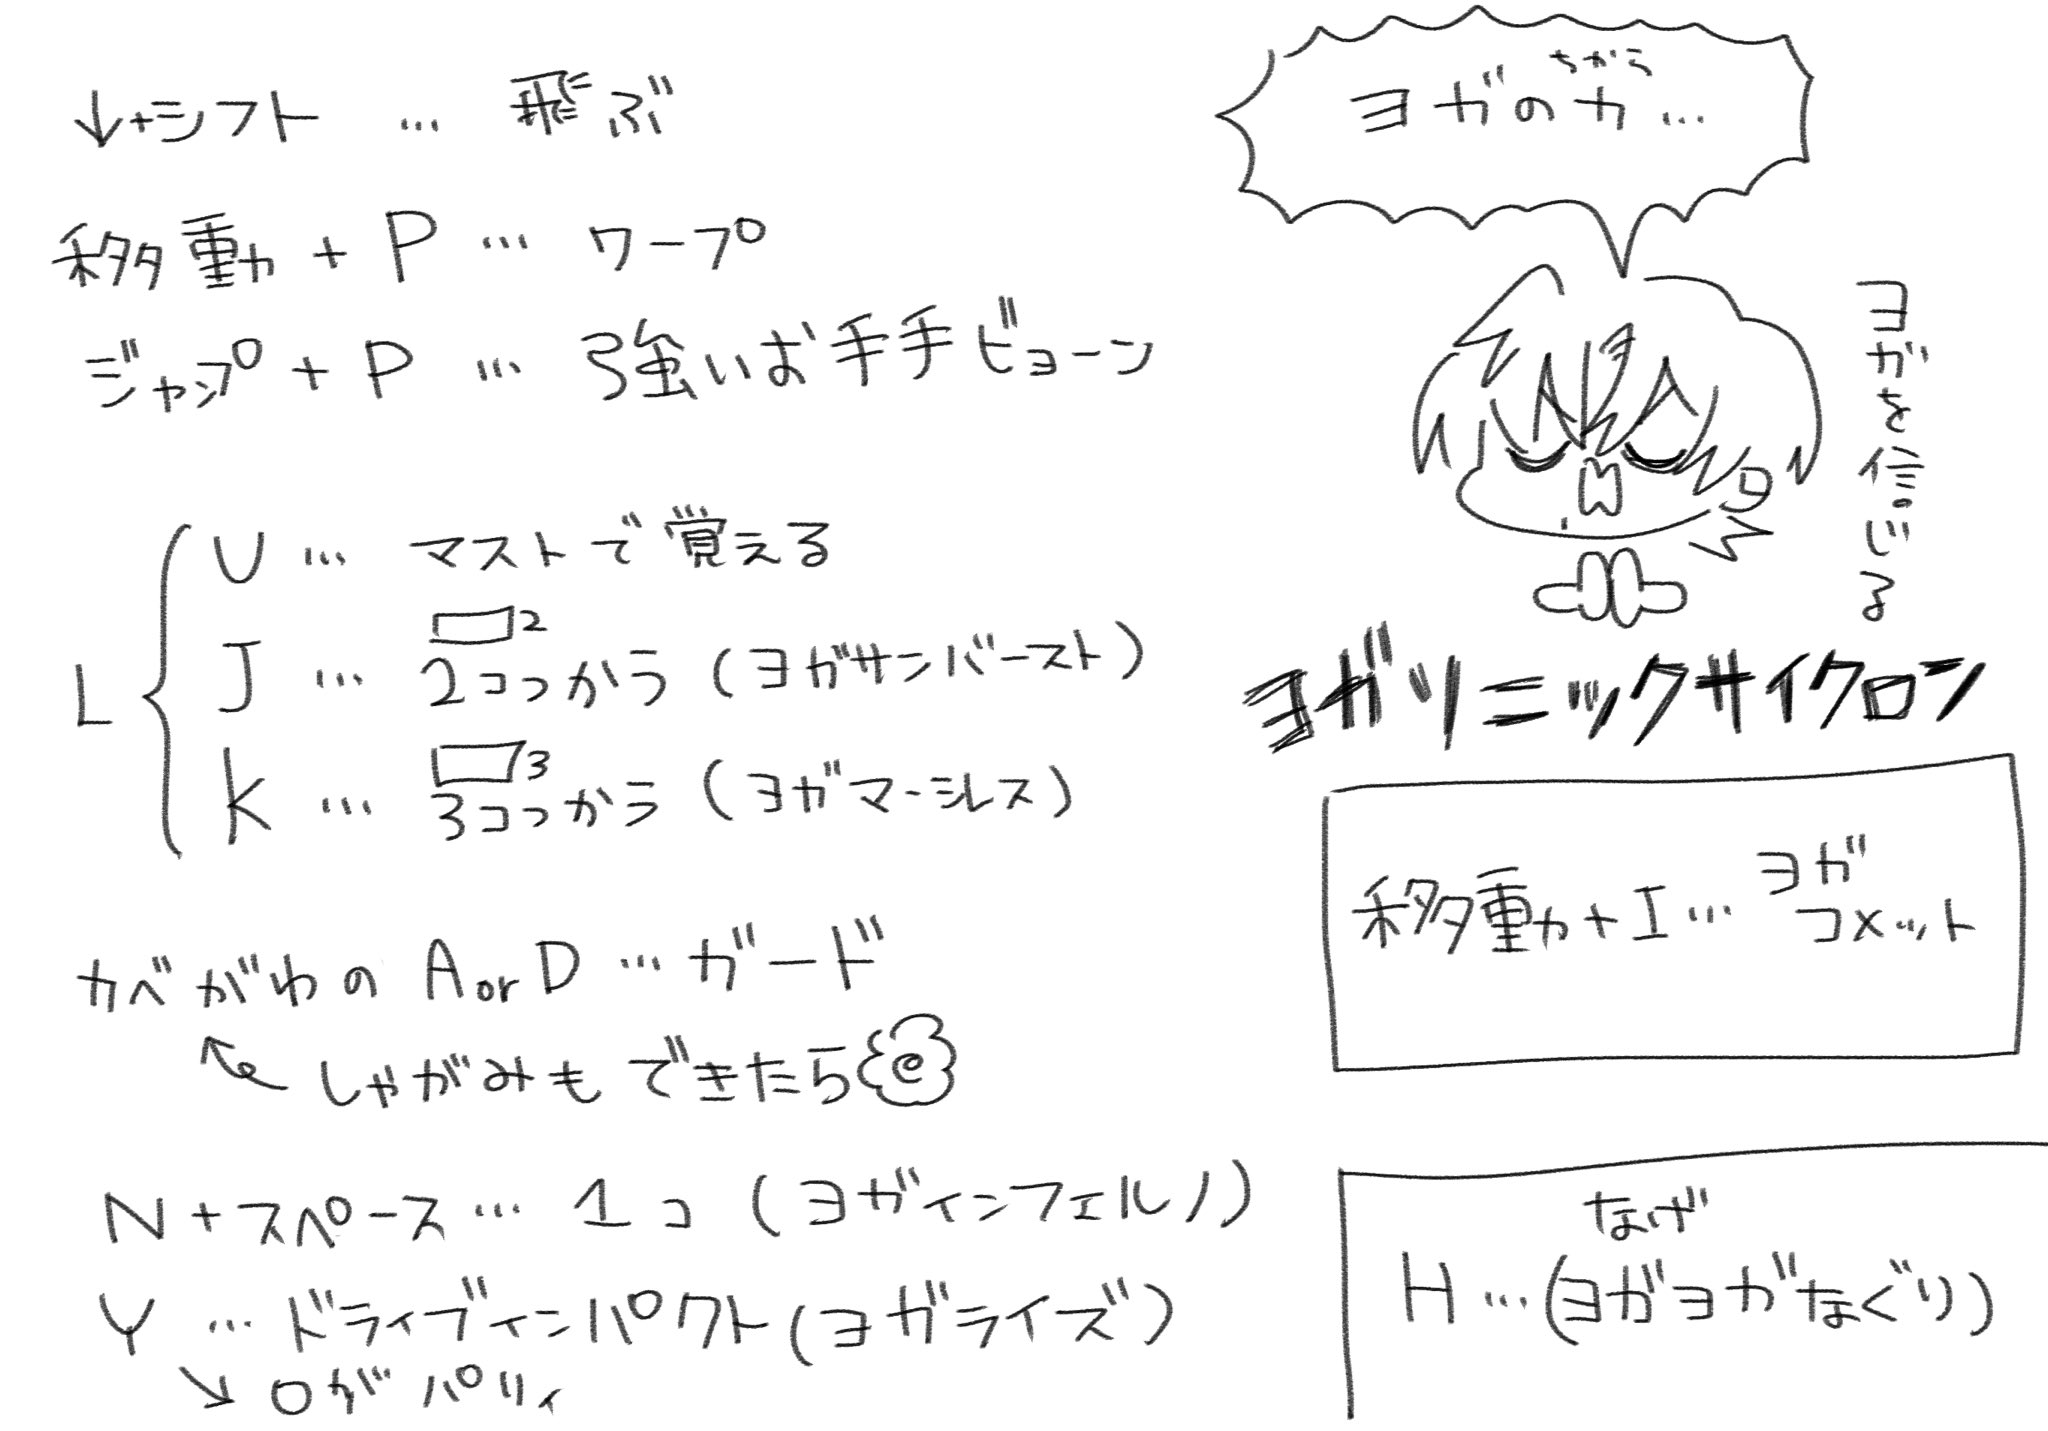 ↓+シフト … 飛ぶ
移動 + P … ワープ
ジャンプ + P … 強いお手手ビョーン
L
U … マストで覚える
J … 2コつかう (ヨガサンバースト)
2
K … 3コつかう (ヨガマーシレス)
3
カベがわの A or D … ガード
しゃがみもできたら
N + スペース … 1コ (ヨガインフェルノ)
Y … ドライブインパクト (ヨガライズ)
↘ Oがパリィ
ヨガの力…
ちから
ヨガを信じる
ヨガソニックサイクロン
移動 + I … ヨガコメット
なげ
H … (ヨガヨガなぐり)